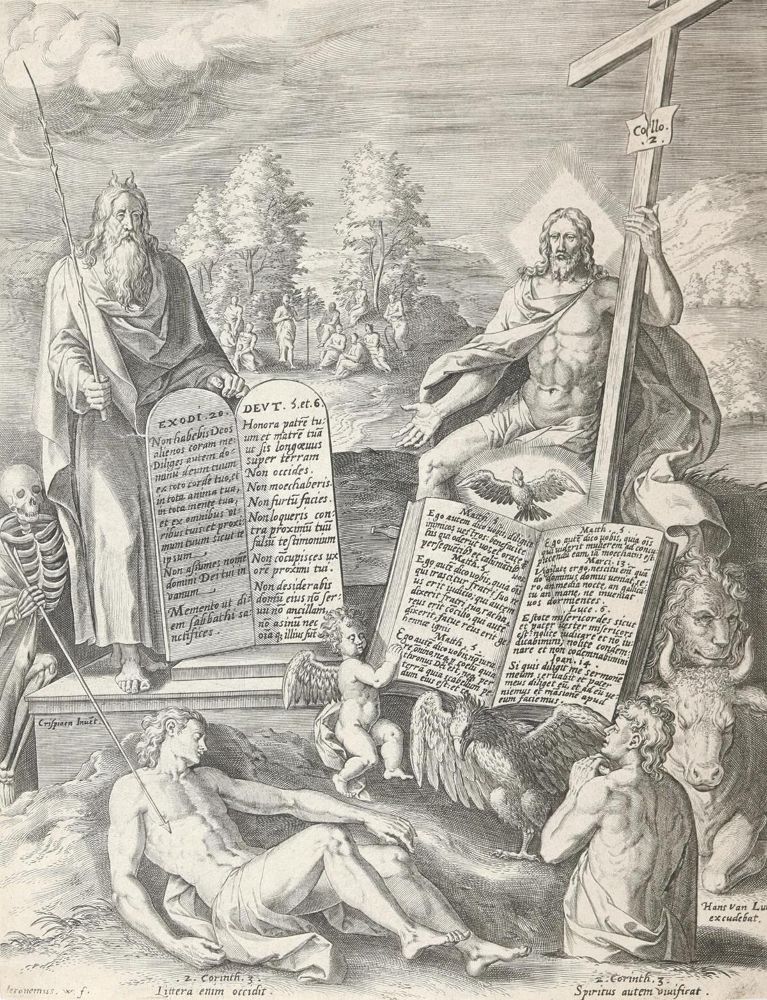 Collo.
.2.
EXODI.20.
Non habebis Deos
alienos coram me.
Diliges autem do-
minū deum tuum
ex toto corde tuo, et
in tota anima tua,
in tota mente tua,
et ex omnibus vi
ribus tuis et proxi
mum tuum sicut te
ipsum.
Non assumes nomē
domini Dei tui in
vanum.
Memento ut di
em sabbathi sa-
nctifices.
DEVT. 5.et.6.
Honora patrē tu-
um et matrē tuā
ut sis longæuus
super terram
Non occides.
Non moechaberis.
Non furtū facies.
Non loqueris con
tra proximū tuū
falsū testimonium
Non cōcupisces ux
ore proximi tui.
Non desiderabis
domū eius nō ser-
uū nō ancillam
nō asinū nec
oīa q; illius sūt
Matth. 5.
Ego autem dico vobis, diligite
inimicos vestros, benefacite
his qui oderūt vos, et orate
persequētib9 et calumniātib9
vos.
Matth. 5.
Ego autē dico vobis, quia oīs
qui irascitur fratri suo re
us erit iudicio, qui autem
dixerit fratri suo racha,
reus erit cōcilio, qui autē
dixerit, fatue reus erit ge
hennæ ignis.
Matth. 5.
Ego autē dico vobis, nō iura-
re omnino, neq; per coelū, quia
thronus Dei est, neq; per
terrā quia scabellum pe-
dum eius est, et ceta.
Matth. 5.
Ego autē dico vobis, quia oīs
qui viderit mulierem ad concu-
piscēdā eam, iā moechatus est.
Marci. 13.
Vigilate ergo, nescitis enī quā
do dominus domus veniat, se-
ro, an media nocte, an gallicā
tu an mane, ne inveniat
vos dormientes.
Luce. 6.
Estote misericordes sicut
et pater vester misericors
est: nolite iudicare et nō iu
dicabimini, nolite condem-
nare et non condemnabimini
Joan. 14.
Si quis diligit me sermonē
meum servabit et pater
meus diliget eū, et ad eū ve
niemus et māsionē apud
eum faciemus.
Crispiaen Invēt.
Hans van Lu
excudebat.
2. Corinth. 3.
Littera enim occidit.
2. Corinth. 3.
Spiritus autem viuificat.
Ieronemus. w. f.